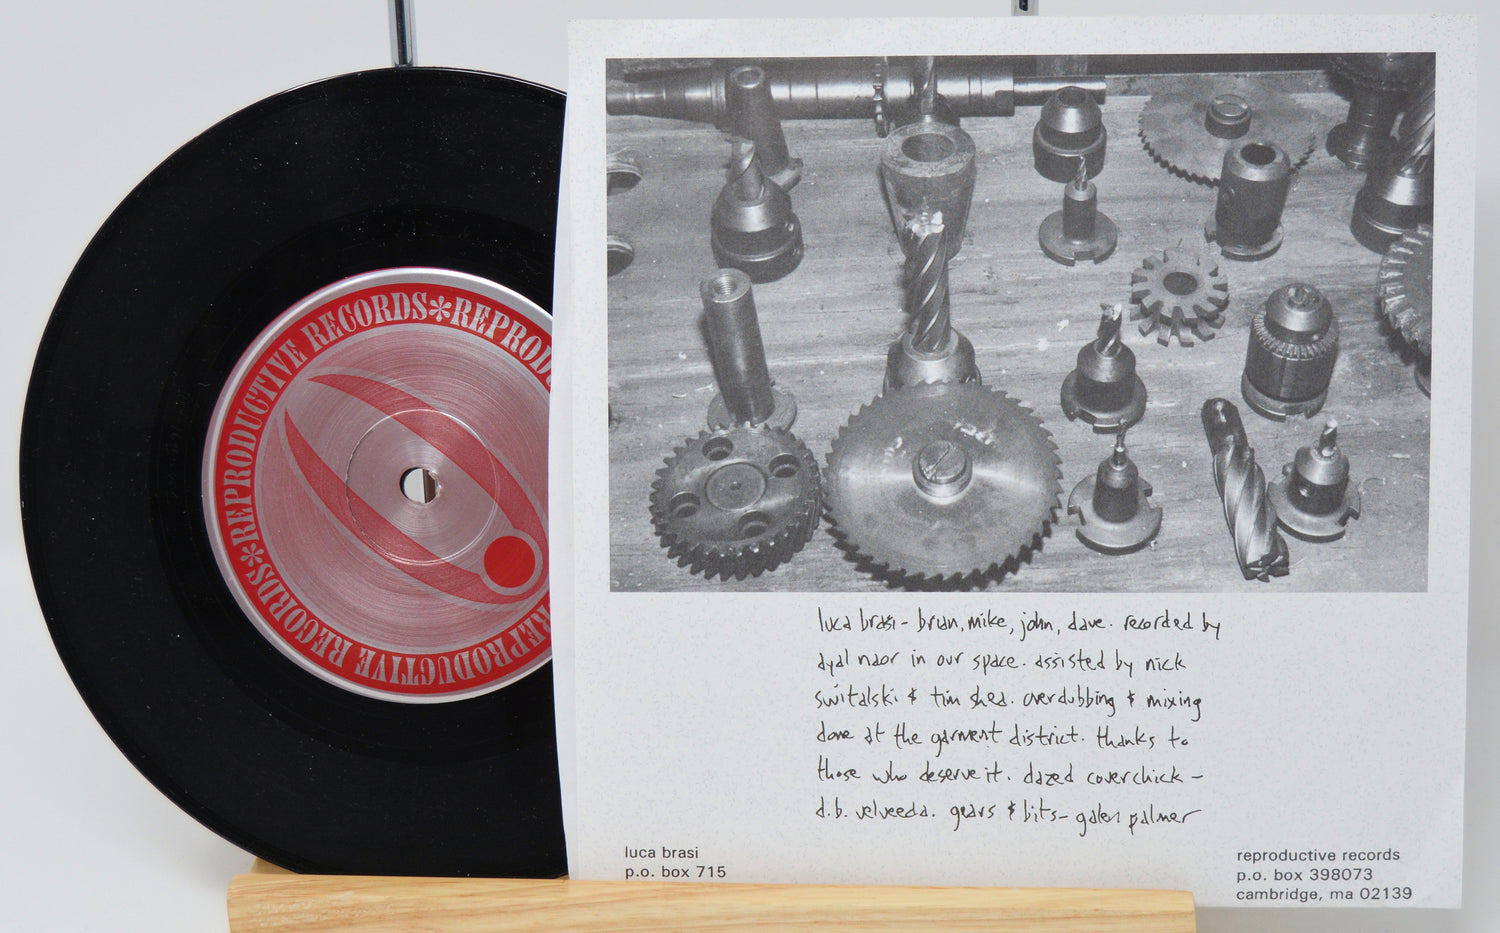 REPRODUCTIVE RECORDS*REPRODU
REPRODUCTIVE RECORDS*
luca brasi - brian, mike, john, dave. recorded by
ayal naor in our space. assisted by nick
switalski & tim shea. overdubbing & mixing
done at the garment district. thanks to
those who deserve it. dazed coverchick -
d.b. velveeda. gears & bits - galen palmer
luca brasi
p.o. box 715
reproductive records
p.o. box 398073
cambridge, ma 02139